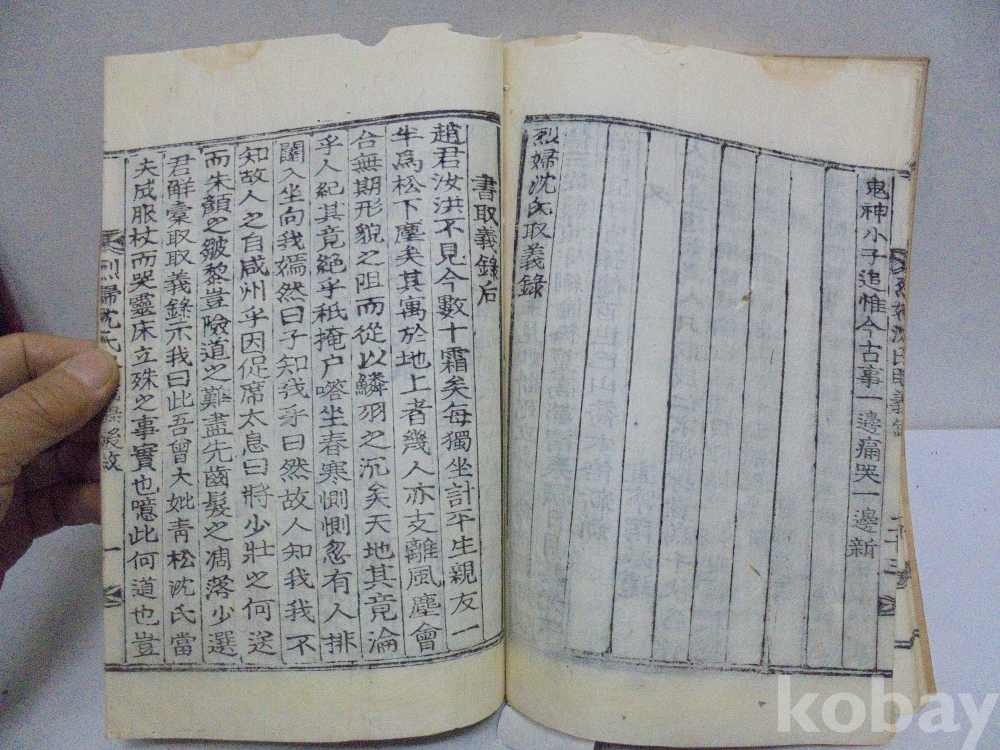 鬼神小子追惟今古事一邊痛哭一邊新
烈婦沈氏取義錄
書取義錄后
趙君汝洪不見今數十霜矣每獨坐計平生親友一
半爲松下塵矣其寓於地上者幾人亦支離風塵會
合無期形貌之阻而從以鱗羽之沉矣天地其竟淪
乎人紀其竟絕乎秖掩户嗒坐春寒惻惻忽有人排
闥入坐向我嫣然曰子知我乎曰然故人知我我不
知故人之自咸州乎因促席太息曰將少壯之何送
而朱顏之皺黎豈險道之難盡先齒髮之凋落少選
君鮮槖取義錄示我曰此吾曾大妣靑松沈氏當
夫成服杖而哭靈床立殊之事實也噫此何道也豈
烈婦沈氏取義錄
烈婦沈氏
錄後敘
一
kobay